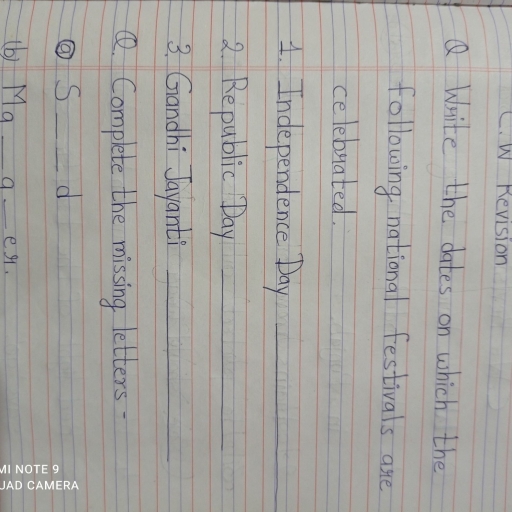 C.W Revision
Q Write the dates on which the
following national festivals are
celebrated.
1. Independence Day ________
2. Republic Day ________
3. Gandhi Jayanti ________
Q. Complete the missing letters -
(a) S _ _ d
(b) Ma _ a _ er.
MI NOTE 9
UAD CAMERA